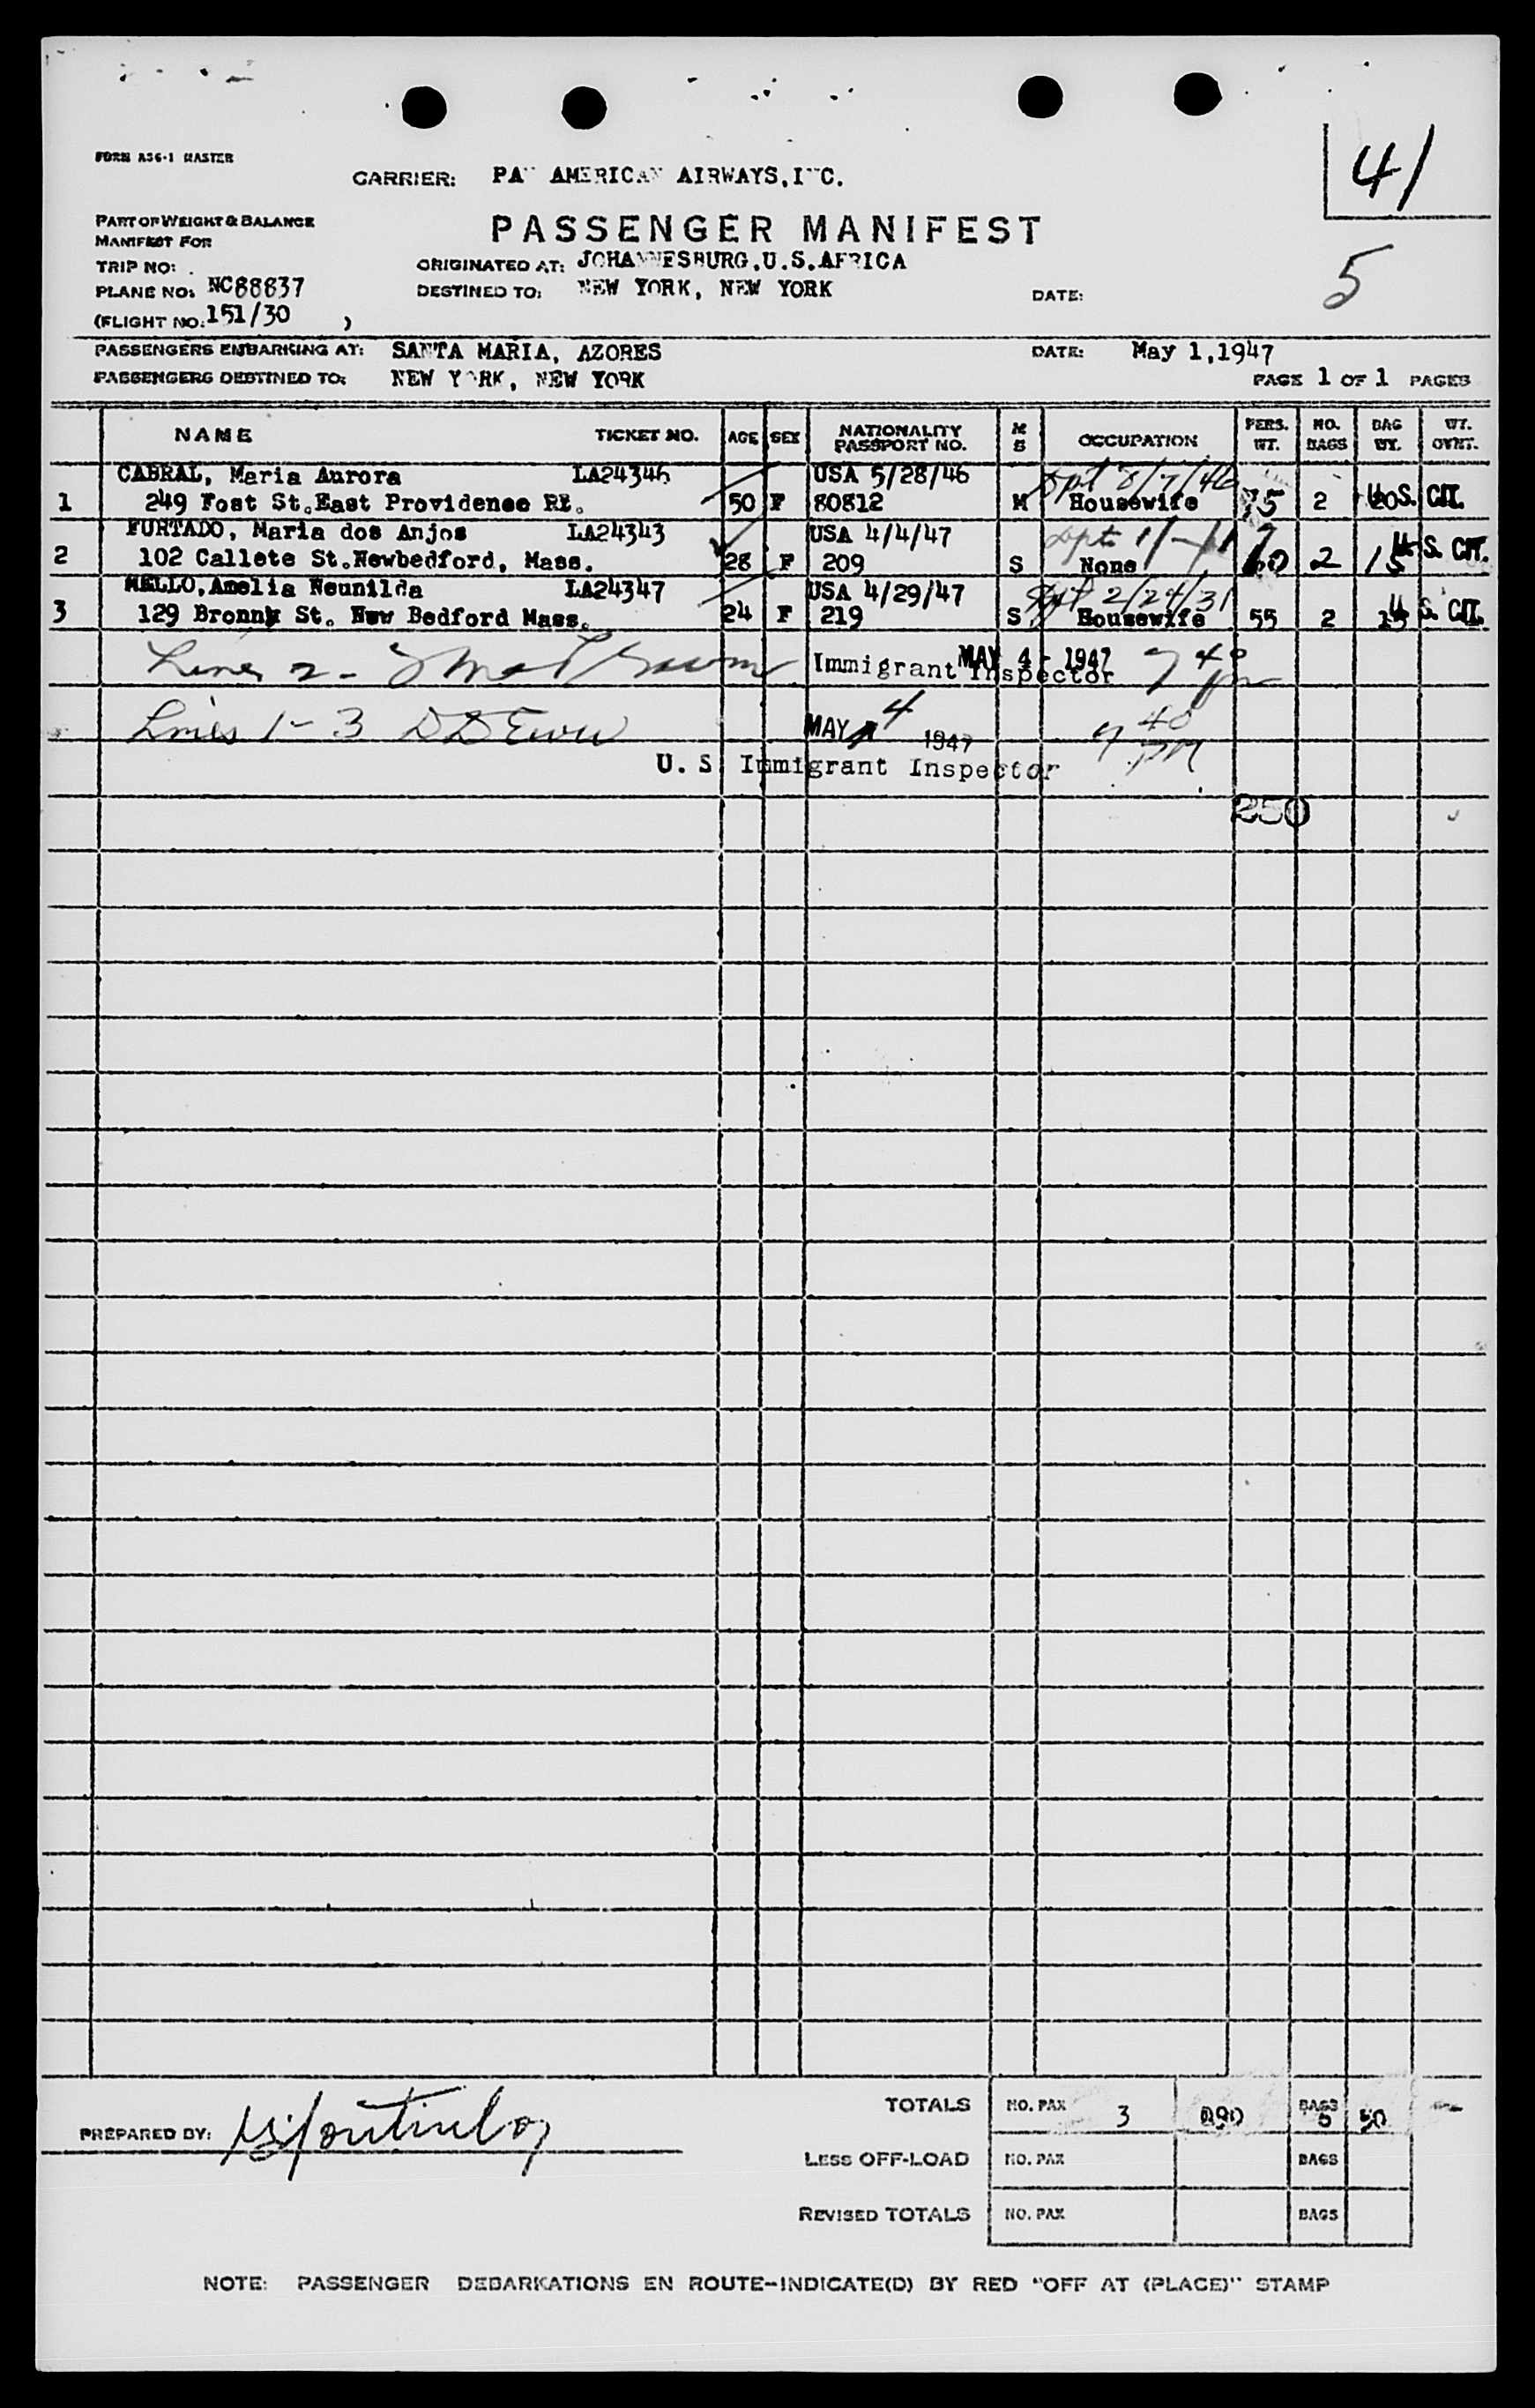 FORM A36-1 MASTER
41
CARRIER: PAN AMERICAN AIRWAYS, INC.
PART OF WEIGHT & BALANCE
MANIFEST FOR
PASSENGER MANIFEST
5
TRIP NO:
ORIGINATED AT: JOHANNESBURG, U.S.AFRICA
PLANE NO: NC88837
DESTINED TO: NEW YORK, NEW YORK
DATE:
(FLIGHT NO: 151/30 )
PASSENGERS EMBARKING AT: SANTA MARIA, AZORES DATE: May 1,1947
PASSENGERS DESTINED TO: NEW YORK, NEW YORK PAGE 1 OF 1 PAGES
NAME TICKET NO. AGE SEX NATIONALITY PASSPORT NO. M S OCCUPATION PERS. WT. NO. BAGS BAG WT. WT. OVWT.
CABRAL, Maria Aurora LA24346 USA 5/28/46 Dpt 8/7/46
1 249 Fost St.East Providence RI. 50 F 80812 M Housewife 75 2 20 U.S. CIT.
FURTADO, Maria dos Anjos LA24343 USA 4/4/47
2 102 Callete St.Newbedford, Mass. 28 F 209 S None 2 15 U.S. CIT.
MELLO,Amelia Neunilda LA24347 USA 4/29/47 Dpt 2/24/31
3 129 Bronny St. New Bedford Mass. 24 F 219 S Housewife 55 2 15 U.S. CIT.
Line 2 - MAY 4 - 1947 7 40 pm
Immigrant Inspector
Lines 1-3 MAY 4 1947 7 40 PM
U. S Immigrant Inspector
250
TOTALS NO. PAX 3 BAGS 50
PREPARED BY:
LESS OFF-LOAD NO. PAX BAGS
REVISED TOTALS NO. PAX BAGS
NOTE: PASSENGER DEBARKATIONS EN ROUTE-INDICATE(D) BY RED "OFF AT (PLACE)" STAMP